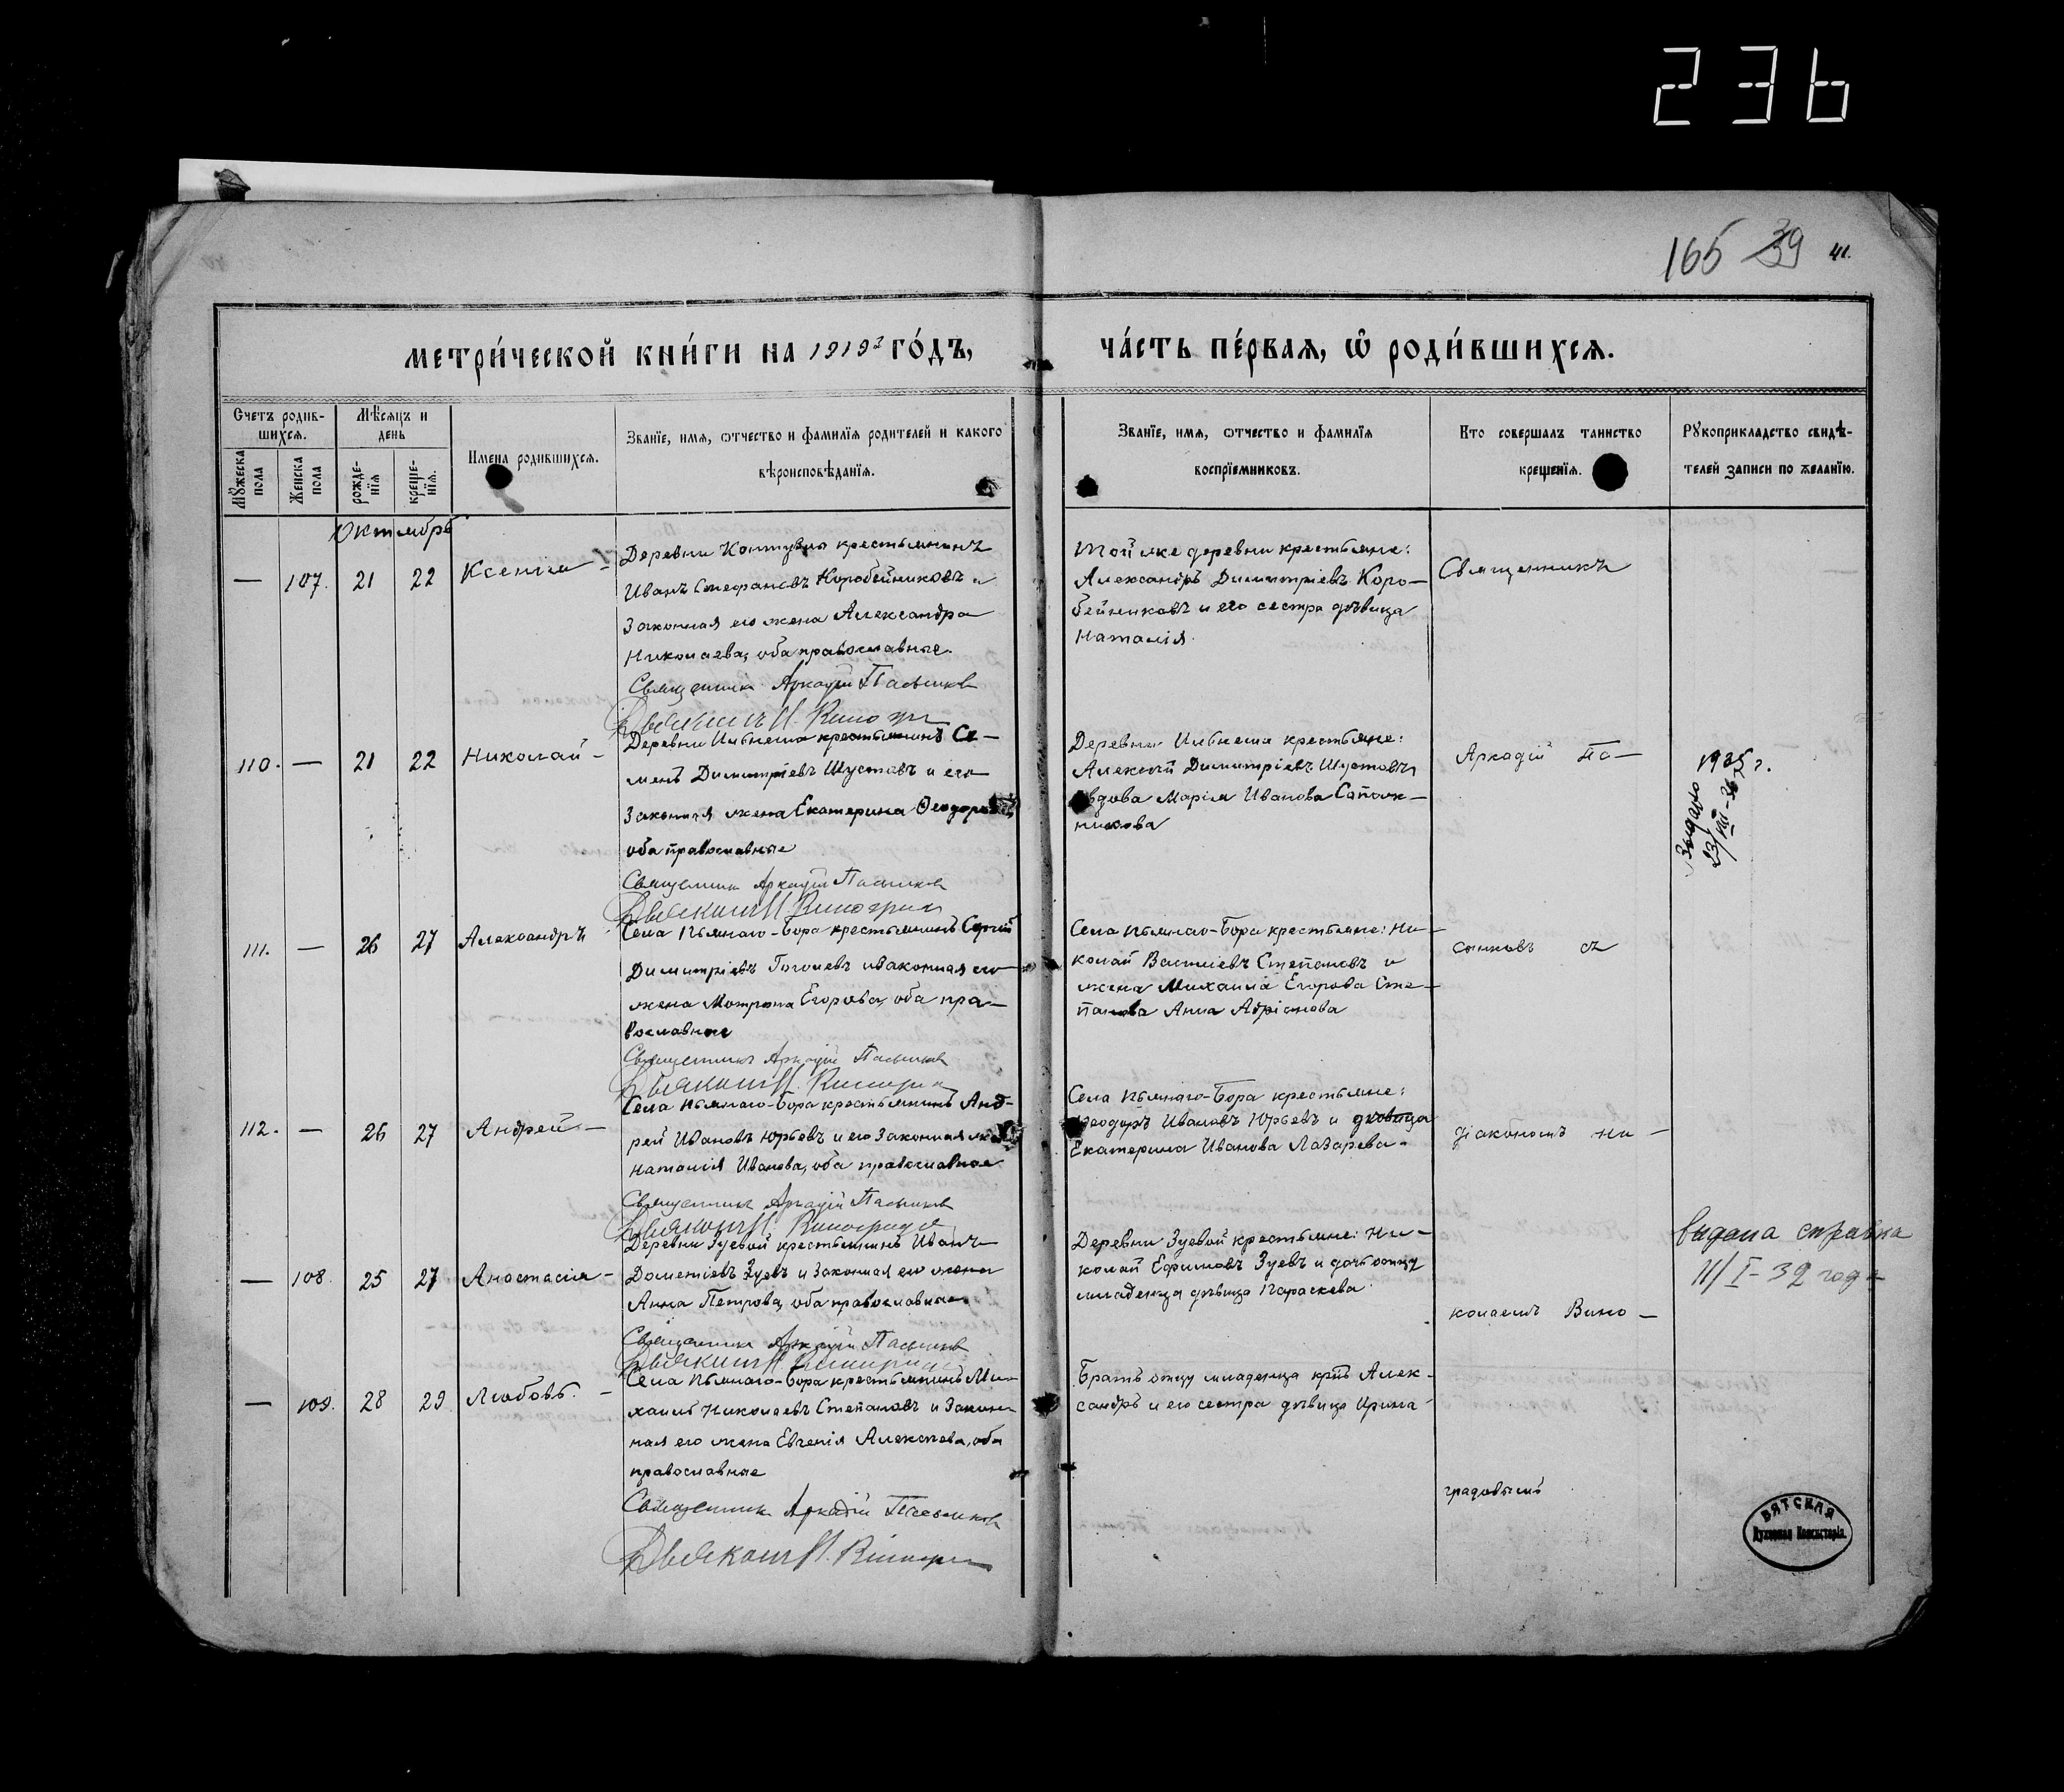 236
165 39 41.
МЕТРИ́ЧЕСКОЙ КНИ́ГИ НА 1919 ГО́ДЪ,
ЧА́СТЬ ПЕ́РВАЯ, Ѿ РОДИ́ВШИХСЯ.
Счетъ родив-
шихся.
Мѣсяцъ и
день
Мꙋжеска
пола
Женска
пола
рожде-
нїя
креще-
нїя.
Имена родившихся.
Званїе, имя, ѡтчество и фамилїя родителей и какого
вѣроисповѣданїя.
Званїе, имя, ѡтчество и фамилїя
воспрїемниковъ.
Кто совершалъ таинство
крещенїя.
Рꙋкоприкладство свидѣ-
телей записи по желанїю.
Октябрь
— 107. 21 22 Ксенія —
Деревни крестьянинъ
Иванъ Стефановъ Коробейниковъ и
законная его жена Александра
Николаева, оба православные.
Священникъ Аркадій
Діаконъ Н. Виногр
Той же деревни крестьяне:
Александръ Димитріевъ Коро—
бейниковъ и его сестра дѣвица
Наталія.
Священникъ
110. — 21 22 Николай —
Деревни Ильнеша крестьянинъ Се—
менъ Димитріевъ Шустовъ и его
законная жена Екатерина Ѳеодоро
оба православные
Священникъ Аркадій
Діаконъ Н. Виногр
Деревни Ильнеша крестьяне:
Алексѣй Димитріевъ Шустовъ
вдова Марія Иванова Сапож—
никова
Аркадій По—
1925 г.
Выдано
23/VIII-25
111. — 26 27 Александръ
Села Пьянаго-Бора крестьянинъ Сергій
Димитріевъ Гоголевъ и законная его
жена Матрона Егорова, оба пра—
вославные
Священникъ Аркадій
Діаконъ Н. Виногр
Села Пьянаго-Бора крестьяне: Ни—
колай Василіевъ Степановъ и
жена Михаила Егорова Сте—
панова Анна Адріанова
сынковъ съ
112. — 26 27 Андрей —
Села Пьянаго-Бора крестьянинъ Анд-
рей Ивановъ Юрьевъ и его законная жена
Наталія Иванова, оба православные
Священникъ Аркадій
Діаконъ Н. Виноградо
Села Пьянаго-Бора крестьяне:
Ѳеодоръ Ивановъ Юрьевъ и дѣвица
Екатерина Иванова Лазарева.
діакономъ Ни—
— 108. 25 27 Анастасія —
Деревни Зуевой крестьянинъ Иванъ
Дометіевъ Зуевъ и законная его жена
Анна Петрова, оба православные
Священникъ Аркадій
Діаконъ Н. Виногр
Деревни Зуевой крестьяне: Ни—
колай Ефимовъ Зуевъ и дочь отцу
младенца дѣвица Параскева
колаемъ Вино—
выдана справка
11/I-32 года
— 109. 28 29 Любовь. —
Села Пьянаго-Бора крестьянинъ Ми-
хаилъ Николаевъ Степановъ и закон-
ная его жена Евгенія Алексѣева, оба
православные
Священникъ Аркадій
Діаконъ Н. Виногр
Братъ отцу младенца крнъ Алек-
сандръ и его сестра дѣвица Ирина
градовымъ
ВЯТСКАЯ
Духовная Консисторія.